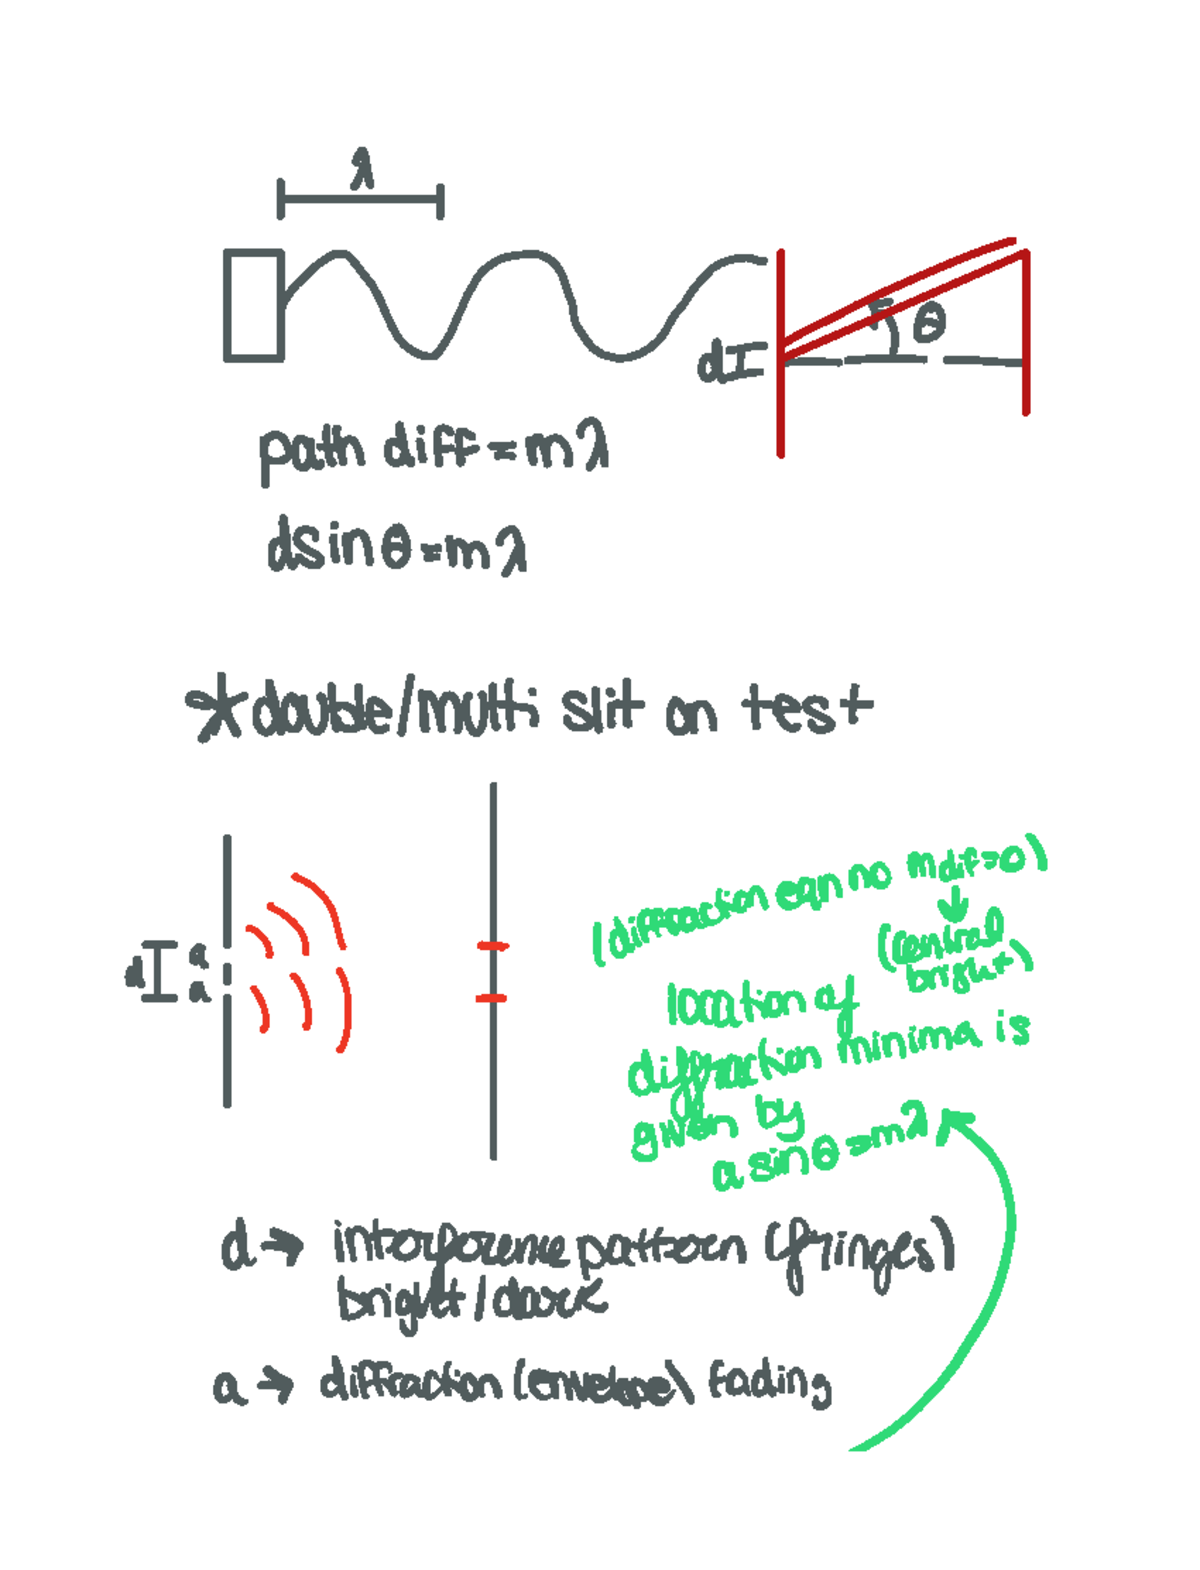 λ
d
θ
path diff = mλ
dsinθ = mλ
*double/multi slit on test
(diffraction eqn no mdif=0)
(central
bright)
d
a
a
location of
diffraction minima is
given by
a sinθ = mλ
d → interference pattern (fringes)
bright/dark
a → diffraction (envelope) fading